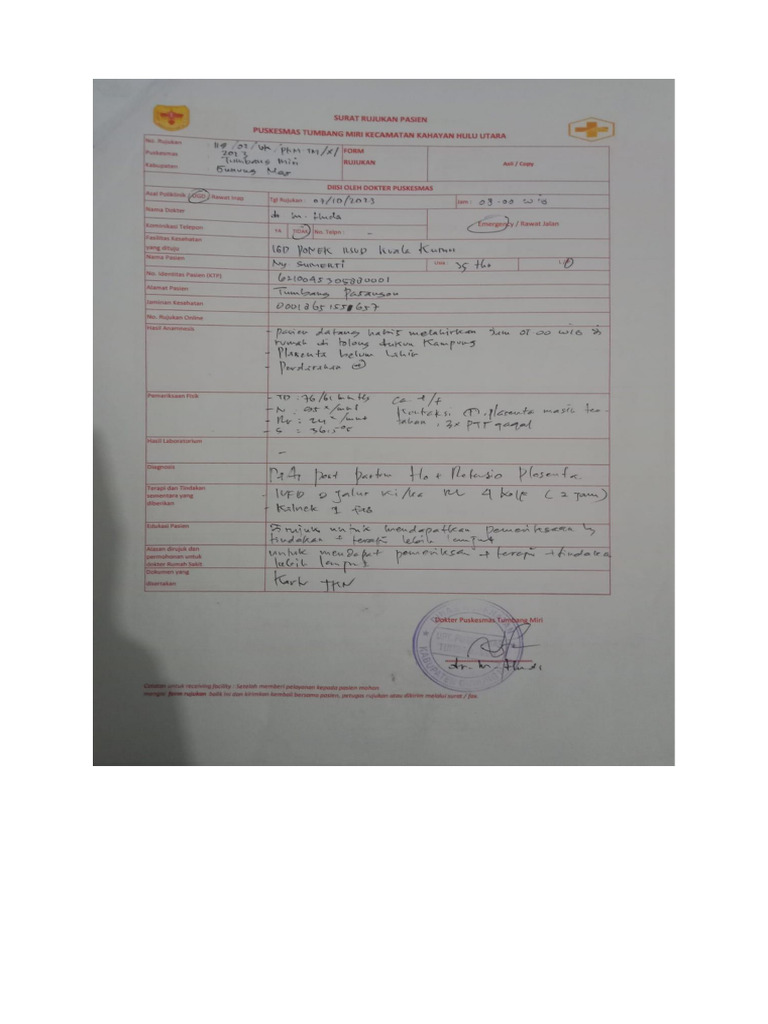 SURAT RUJUKAN PASIEN
PUSKESMAS TUMBANG MIRI KECAMATAN KAHAYAN HULU UTARA
No. Rujukan
Puskesmas 2023 Tumbang Miri
Kabupaten Gunung Mas
FORM
RUJUKAN
Asli / Copy
DIISI OLEH DOKTER PUSKESMAS
Asal Poliklinik / UGD / Rawat Inap
Tgl Rujukan : 07/10/2023
Jam : 09.00 WIB
Nama Dokter dr M. Huda
Emergency / Rawat Jalan
Komunikasi Telepon YA TIDAK No. Telpn : -
Fasilitas Kesehatan
yang dituju IGD PONEK RSUD Kuala Kurun
Nama Pasien Ny. SUMERTI
Usia 35 thn
L/P
No. Identitas Pasien (KTP)
Alamat Pasien Tumbang
Jaminan Kesehatan
No. Rujukan Online
Hasil Anamnesis - pasien datang habis melahirkan Jam 07.00 WIB di
rumah di tolong dukun Kampung
- Plasenta belum lahir
- Perdarahan (+)
Pemeriksaan Fisik - TD : 76/61 mmHg
- N : 95 x/mnt Kontraksi (+), plasenta masih ter
- RR : 24 x/mnt tahan, gagal
- S : 36.5°C
Hasil Laboratorium -
Diagnosis post partum + Retensio Plasenta.
Terapi dan Tindakan
sementara yang
diberikan - IVFD 2 jalur ki/ka RL 4 kolf (2 jam)
Edukasi Pasien Dirujuk untuk mendapatkan pemeriksaan
tindakan + terapi lebih lanjut
Alasan dirujuk dan
permohonan untuk
dokter Rumah Sakit untuk mendapat pemeriksaan + terapi + tindakan
lebih lanjut
Dokumen yang
disertakan
Dokter Puskesmas Tumbang Miri
dr. M. Huda
Catatan untuk receiving facility : Setelah memberi pelayanan kepada pasien mohon
mengisi form rujukan balik ini dan kirimkan kembali bersama pasien, petugas rujukan atau dikirim melalui surat / fax